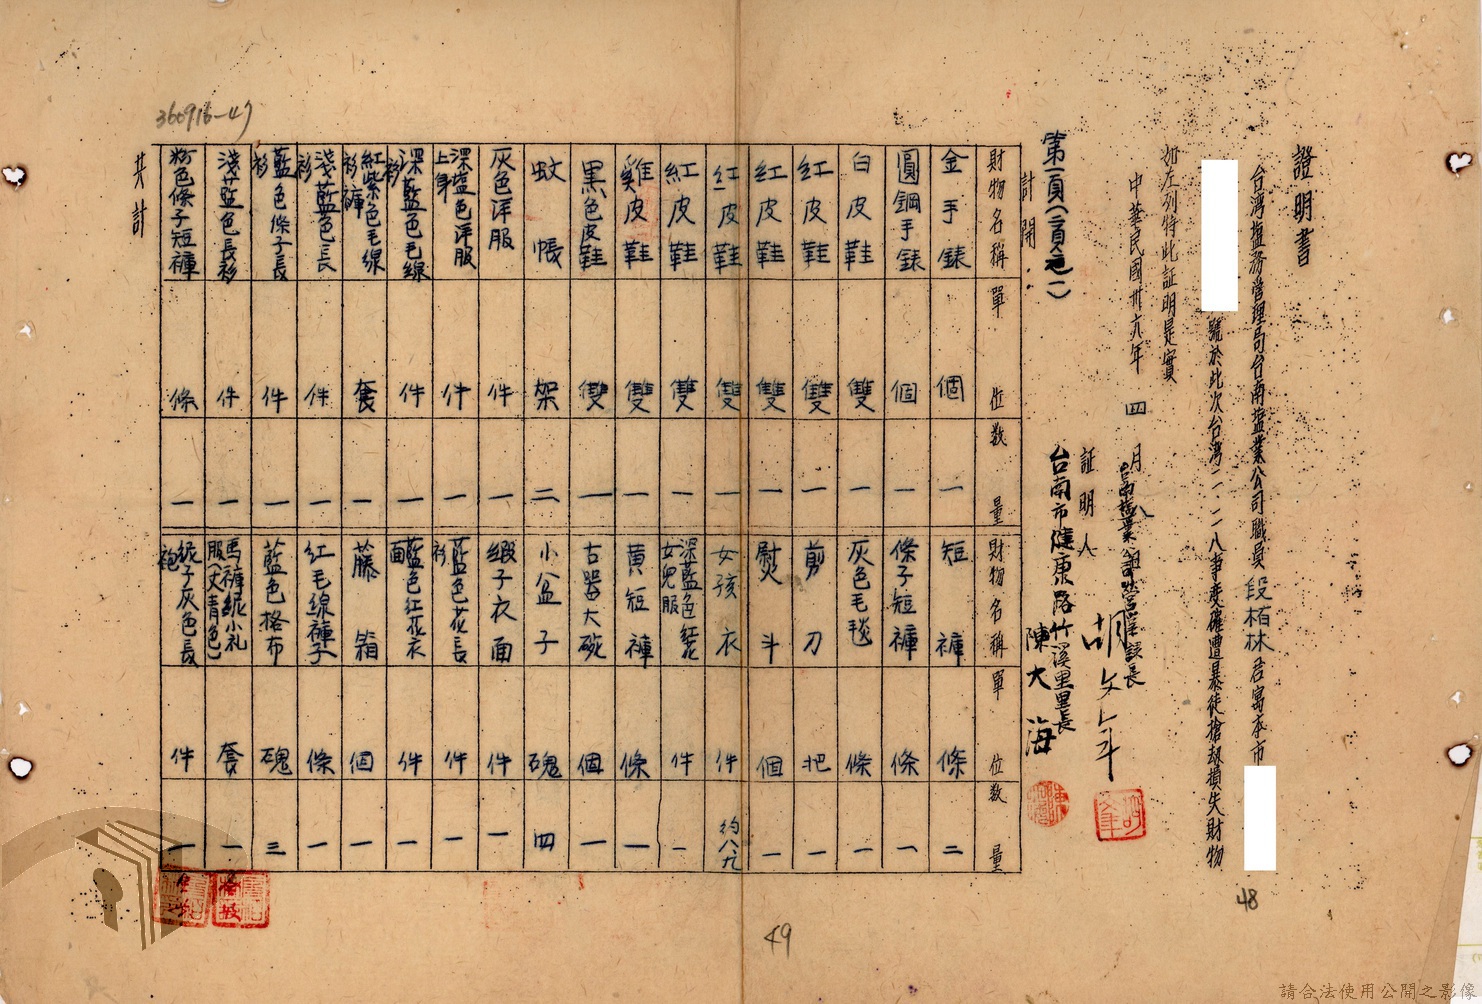 證明書
台灣塩務管理局台南塩業公司職員段栢林君寓本市
號於此次台灣二.二八事变確遭暴徒搶刼損失財物
如左列特此証明是實
中華民國卅六年四月八
証明人
胡文年
台南市健康路竹溪里里長
陳大海
第一頁
計開：
財物名稱 單位 数量 財物名稱 單位 数量
金手錶 個 一 短褲 條 二
圓鋼手錶 個 一 條子短褲 條 一
白皮鞋 雙 一 灰色毛毯 條 一
紅皮鞋 雙 一 剪刀 把 一
紅皮鞋 雙 一 熨斗 個 一
紅皮鞋 雙 一 女孩衣 件 約八九
紅皮鞋 雙 一 深藍色紅花女兒服 件 一
雞皮鞋 雙 一 黄短褲 條 一
黑色皮鞋 雙 一 古器大碗 個 一
蚊帳 架 二 小盆子 磈 四
灰色洋服 件 一 緞子衣面 件 一
深塩色洋服上身 件 一 藍色花長衫 件 一
深藍色毛線衫 件 一 藍色紅花衣面 件 一
紅紫色毛線衫褲 套 一 藤箱 個 一
淺藍色長衫 件 一 紅毛線褲子 條 一
藍色條子長衫 件 一 藍色格布 磈 三
淺藍色長衫 件 一 馬褲呢小礼服(丈青色) 套 一
粉色條子短褲 條 一 呢子灰色長袍 件 一
共計
360918-47
48
49
請合法使用公開之影像